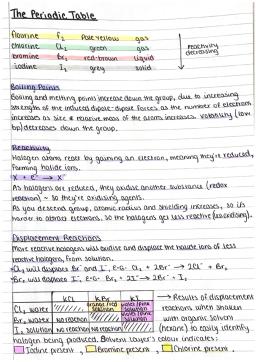 The Periodic Table
fluorine F₂ Pale yellow gas
chlorine Cl₂ green gas
bromine Br₂ red-brown liquid
iodine I₂ grey solid
reactivity decreasing
Boiling Points
Boiling and melting points increase down the group, due to increasing
strength of the induced dipole-dipole forces as the number of electrons
increases as size & relative mass of the atoms increases. Volatility (low
bp) decreases down the group.
Reactivity
Halogen atoms react by gaining an electron, meaning they're reduced,
forming halide ions.
X + e⁻ → X⁻
As halogens are reduced, they oxidise another substance (redox
reaction) - so they're oxidising agents.
As you descend group, atomic radius and shielding increases, so it's
harder to attract electrons, so the halogens get less reactive (oxidising).
Displacement Reactions
More reactive halogens will oxidise and displace the halide ions of less
reactive halogens, from solution.
Cl₂ will displace Br⁻ and I⁻, E.G. Cl₂ + 2Br⁻ → 2Cl⁻ + Br₂
Br₂ will displace I⁻, E.G. Br₂ + 2I⁻ → 2Br⁻ + I₂
KCl KBr KI
Cl₂ water
Br₂ water No reaction
I₂ solution No reaction No reaction
→ Results of displacement
reactions when shaken
with organic solvent
(hexane) to easily identify
halogen being produced. Solvent layer's colour indicates:
Iodine present, Bromine present, Chlorine present.